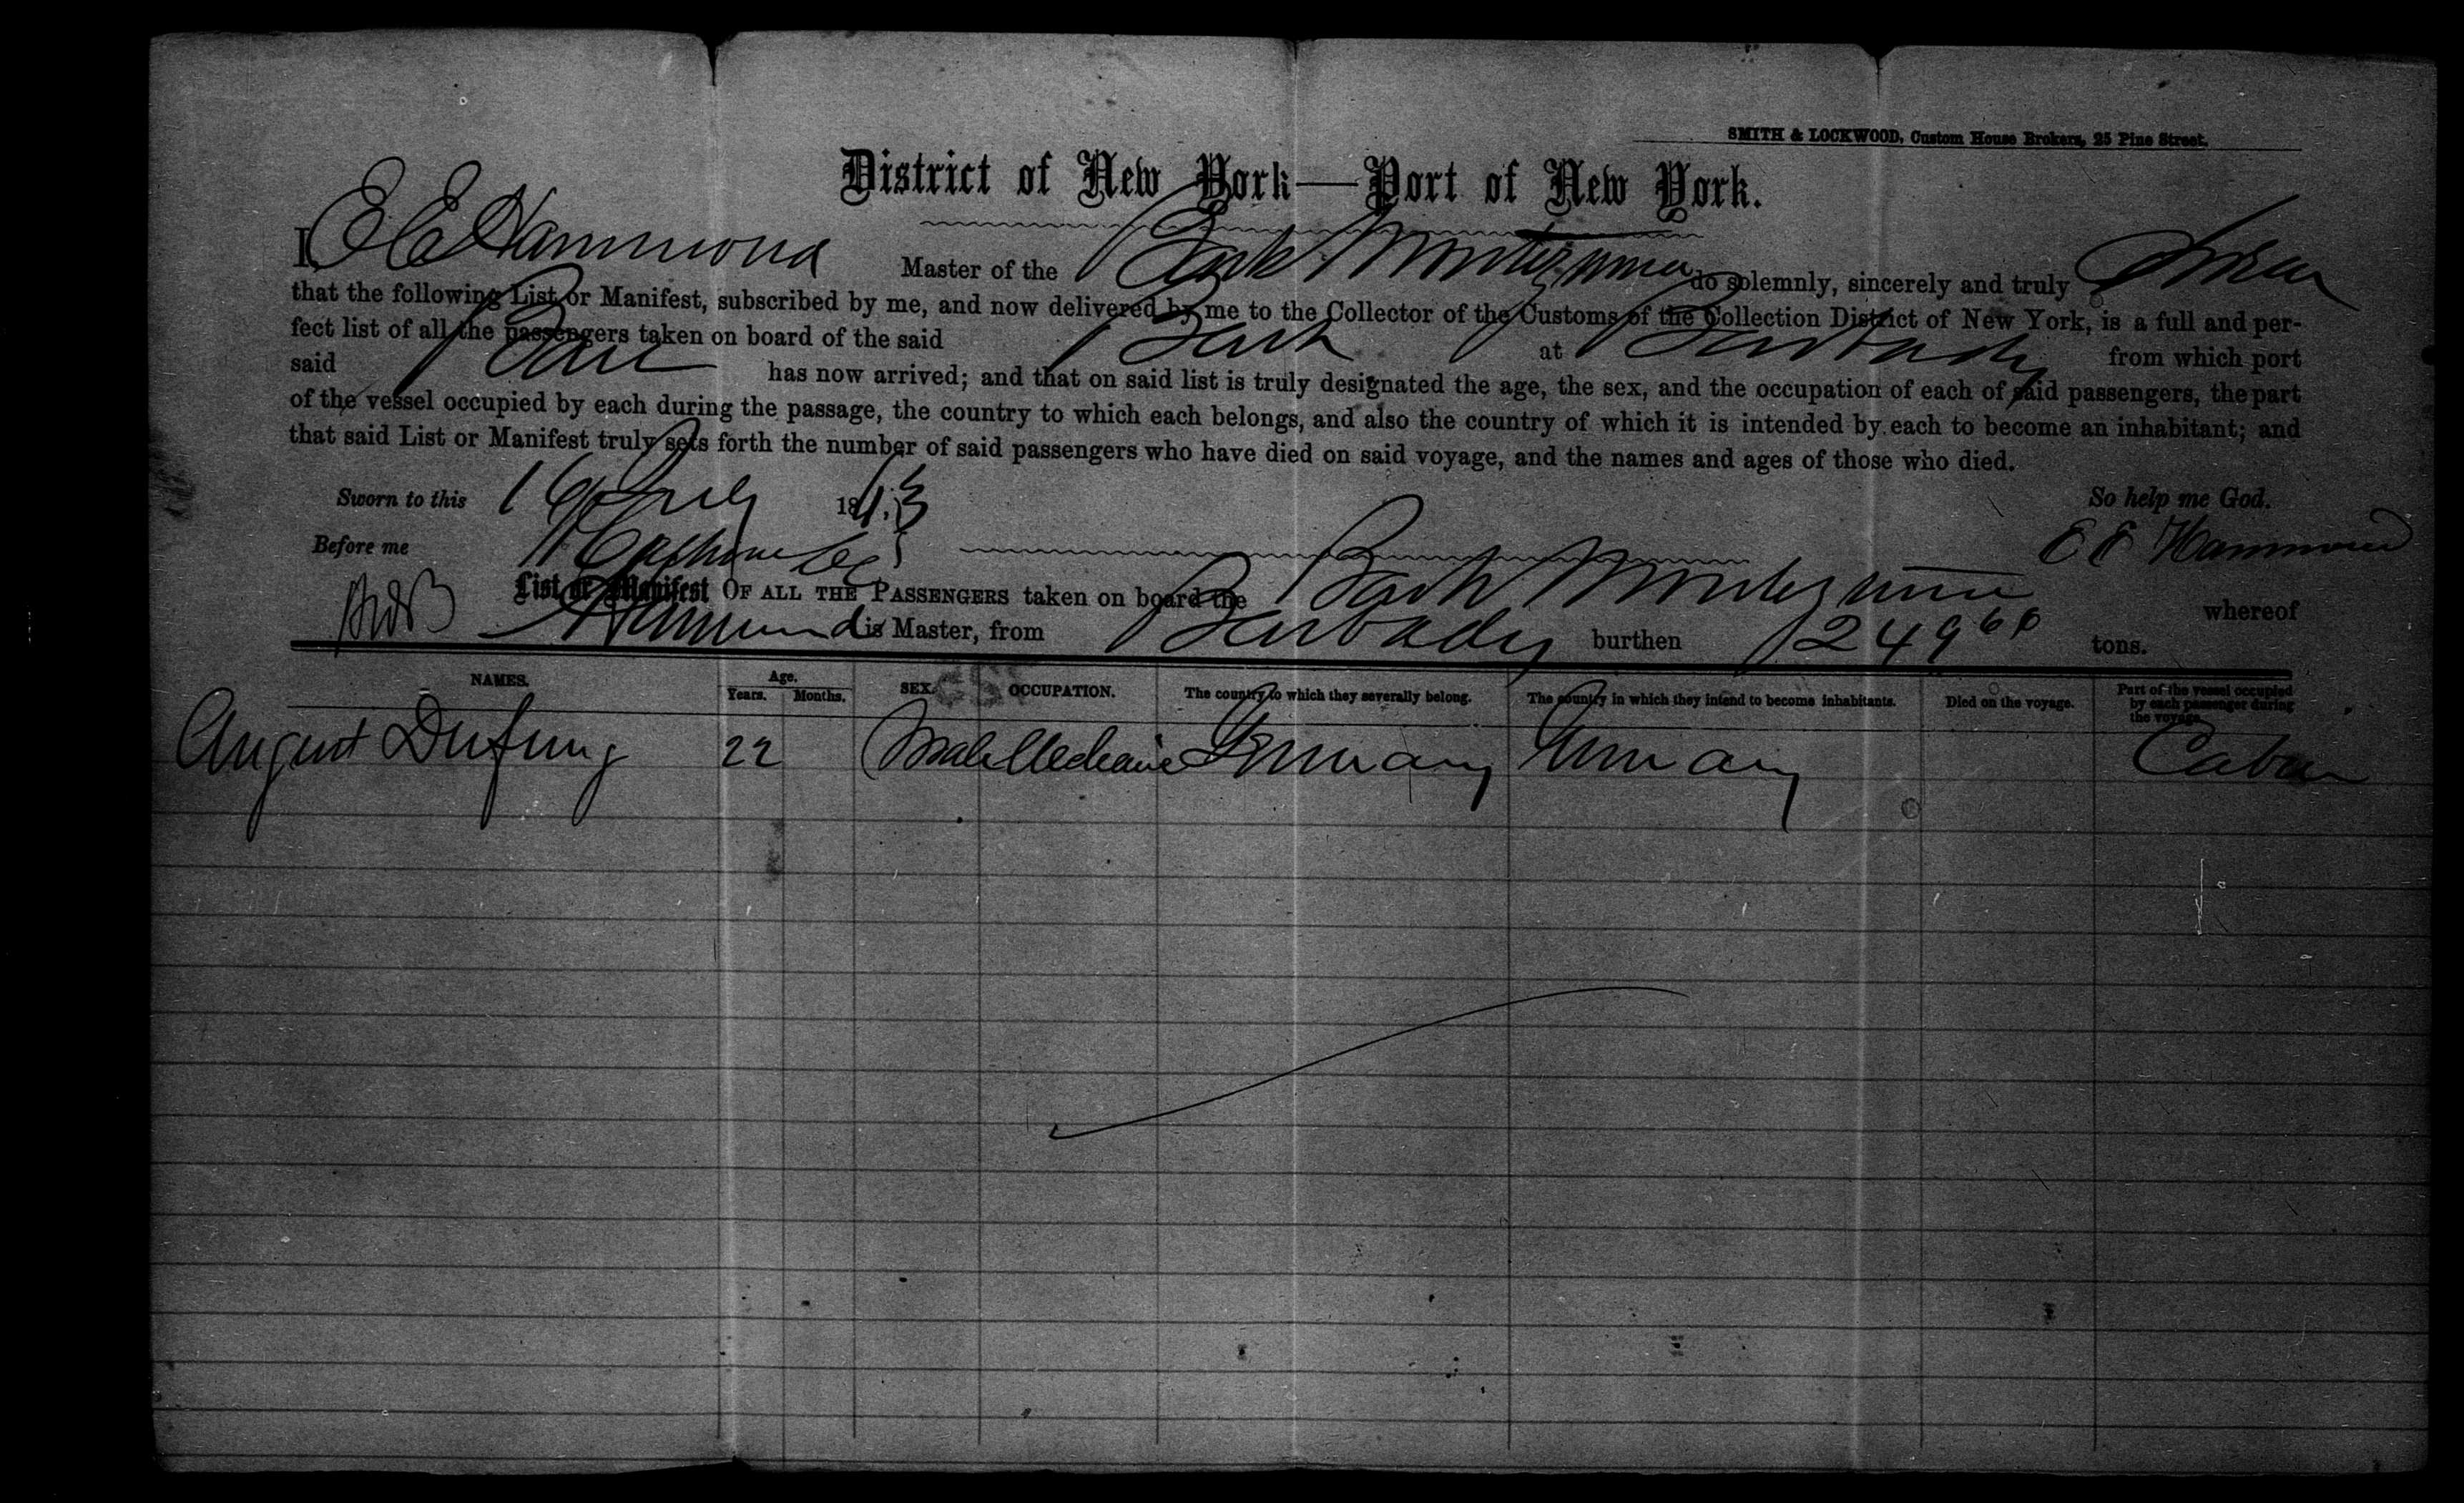 SMITH & LOCKWOOD, Custom House Brokers, 25 Pine Street.
District of New York—Port of New York.
I, E E Hammond Master of the Bark Montezuma do solemnly, sincerely and truly Swear
that the following List or Manifest, subscribed by me, and now delivered by me to the Collector of the Customs of the Collection District of New York, is a full and per-
fect list of all the passengers taken on board of the said Bark at Barbados from which port
said Bark has now arrived; and that on said list is truly designated the age, the sex, and the occupation of each of said passengers, the part
of the vessel occupied by each during the passage, the country to which each belongs, and also the country of which it is intended by each to become an inhabitant; and
that said List or Manifest truly sets forth the number of said passengers who have died on said voyage, and the names and ages of those who died.
Sworn to this 16 July 18 So help me God.
Before me E E Hammond
List or Manifest OF ALL THE PASSENGERS taken on board the Bark Montezuma whereof
Hammond is Master, from Barbados burthen 249 tons.
NAMES. Age. Years. Months. SEX. OCCUPATION. The country to which they severally belong. The country in which they intend to become inhabitants. Died on the voyage. Part of the vessel occupied by each passenger during the voyage.
August 22 Male Mechanic Germany Germany Cabin